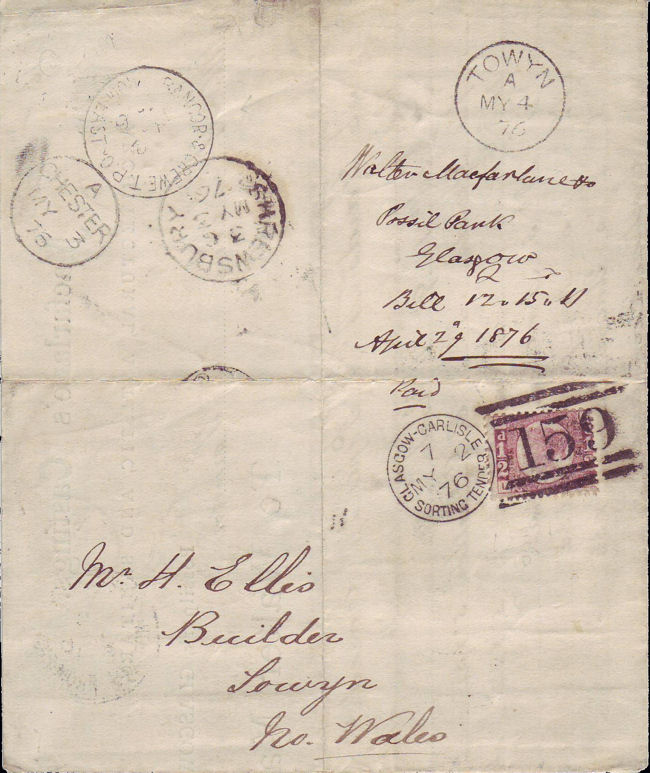 TOWYN
A
MY 4
76
BANGOR & CREWE T.P.O.
CHESTER
A
MY 3
76
SHREWSBURY
MY 3
76
Walter Macfarlane & Co
Possil Park
Glasgow
Bill 12 " 15 "
April 29 1876
Paid
GLASGOW-CARLISLE SORTING TENDER
7 2
MY
76
159
Mr. H. Ellis
Builder
Towyn
No. Wales